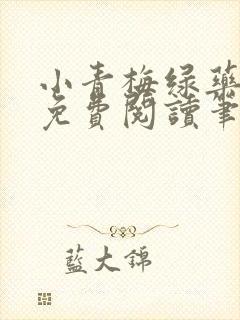 小青梅绿蕊
免費閱讀筆
藍大錦